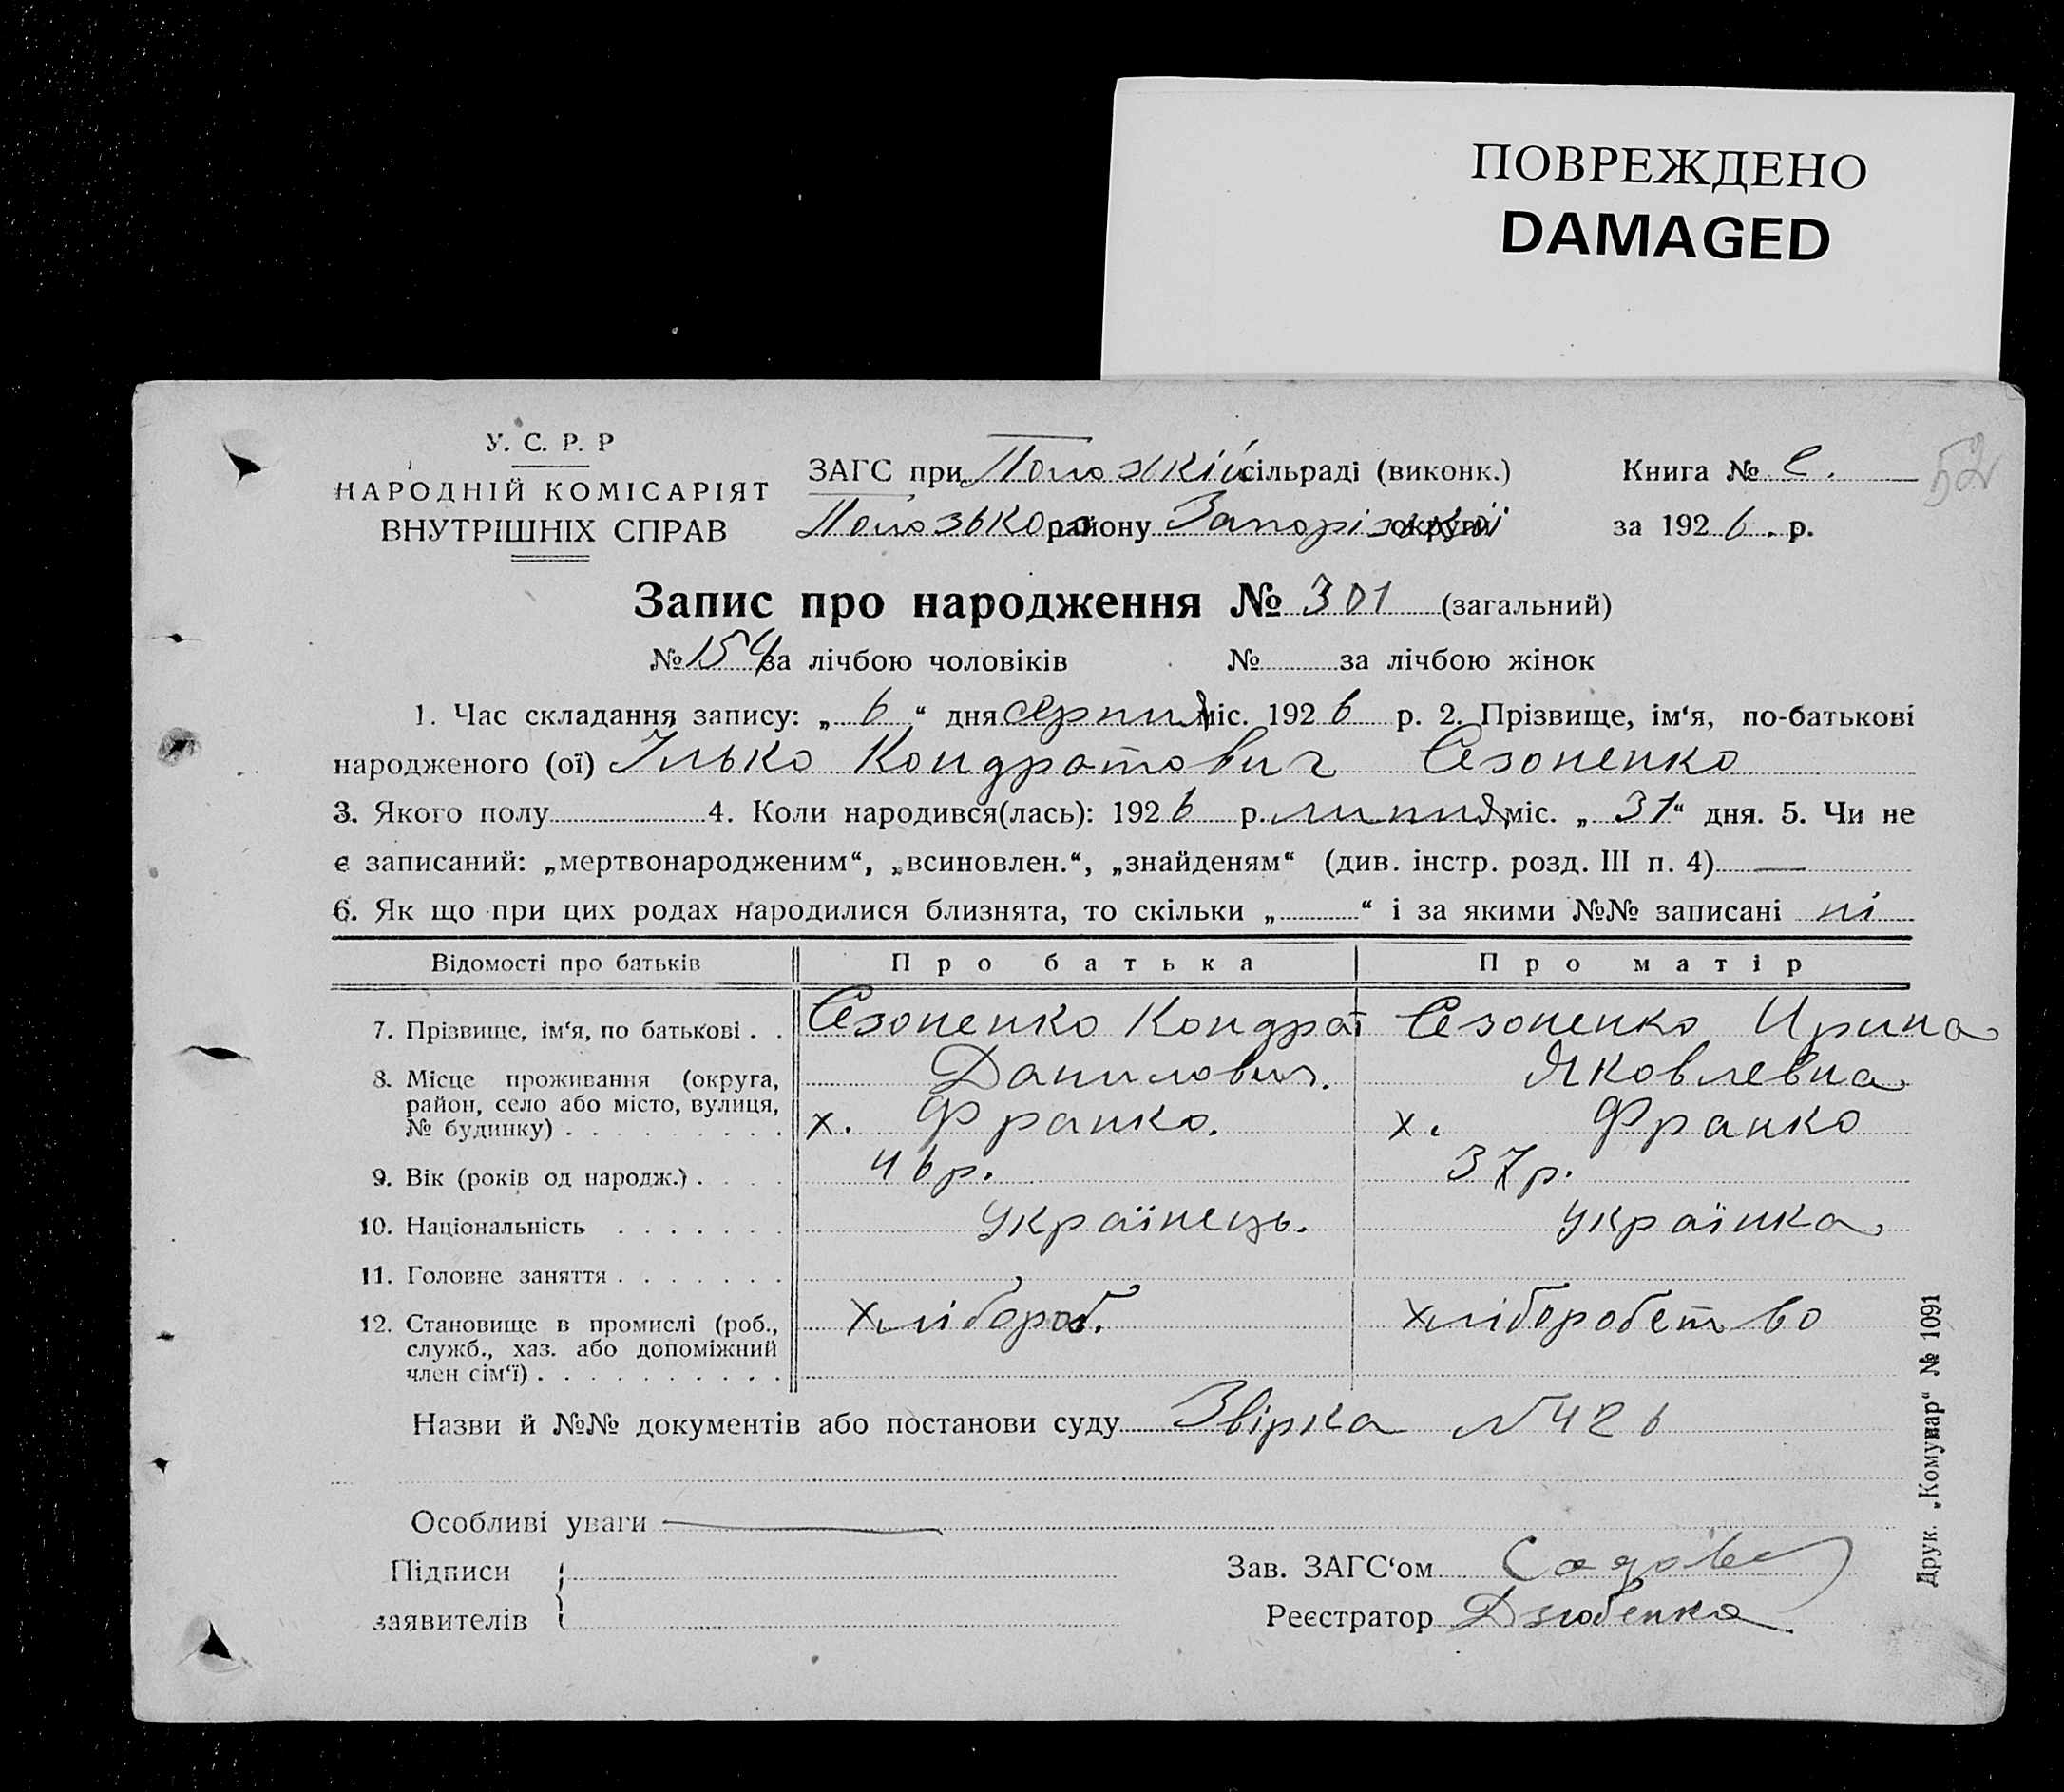 ПОВРЕЖДЕНО
DAMAGED
52
У. С. Р. Р
НАРОДНІЙ КОМІСАРІЯТ
ВНУТРІШНІХ СПРАВ
ЗАГС при Положській сільраді (виконк.)
Книга №
району Запорізької округи
за 1926 р.
Запис про народження № 301 (загальний)
№ 154 за лічбою чоловіків № за лічбою жінок
1. Час складання запису: „6“ дня серпня міс. 1926 р. 2. Прізвище, ім‘я, по-батькові
народженого (ої) Ілько Кондратович Сезоненко
3. Якого полу 4. Коли народився(лась): 1926 р. липня міс. „31“ дня. 5. Чи не
є записаний: „мертвонародженим“, „всиновлен.“, „знайденям“ (див. інстр. розд. III п. 4) —
6. Як що при цих родах народилися близнята, то скільки „ “ і за якими №№ записані ні
Відомості про батьків Про батька Про матір
7. Прізвище, ім‘я, по батькові . . Сезоненко Кондрат Сезоненко Ирина
Данилович. Яковлевна
8. Місце проживання (округа,
район, село або місто, вулиця,
№ будинку) . . . . . . . . . х. Франко. х. Франко
9. Вік (років од народж.) . . . . 46 р. 37 р.
10. Національність . . . . . . . Українець. Українка
11. Головне заняття . . . . . . .
12. Становище в промислі (роб., хлібороб. хліборобство
служб., хаз. або допоміжний
член сім‘ї) . . . . . . . . . .
Назви й №№ документів або постанови суду Звірка № 426
Особливі уваги —
Підписи
заявителів
Зав. ЗАГС‘ом
Реєстратор Дзюбенко
Друк. „Комунар“ № 1091